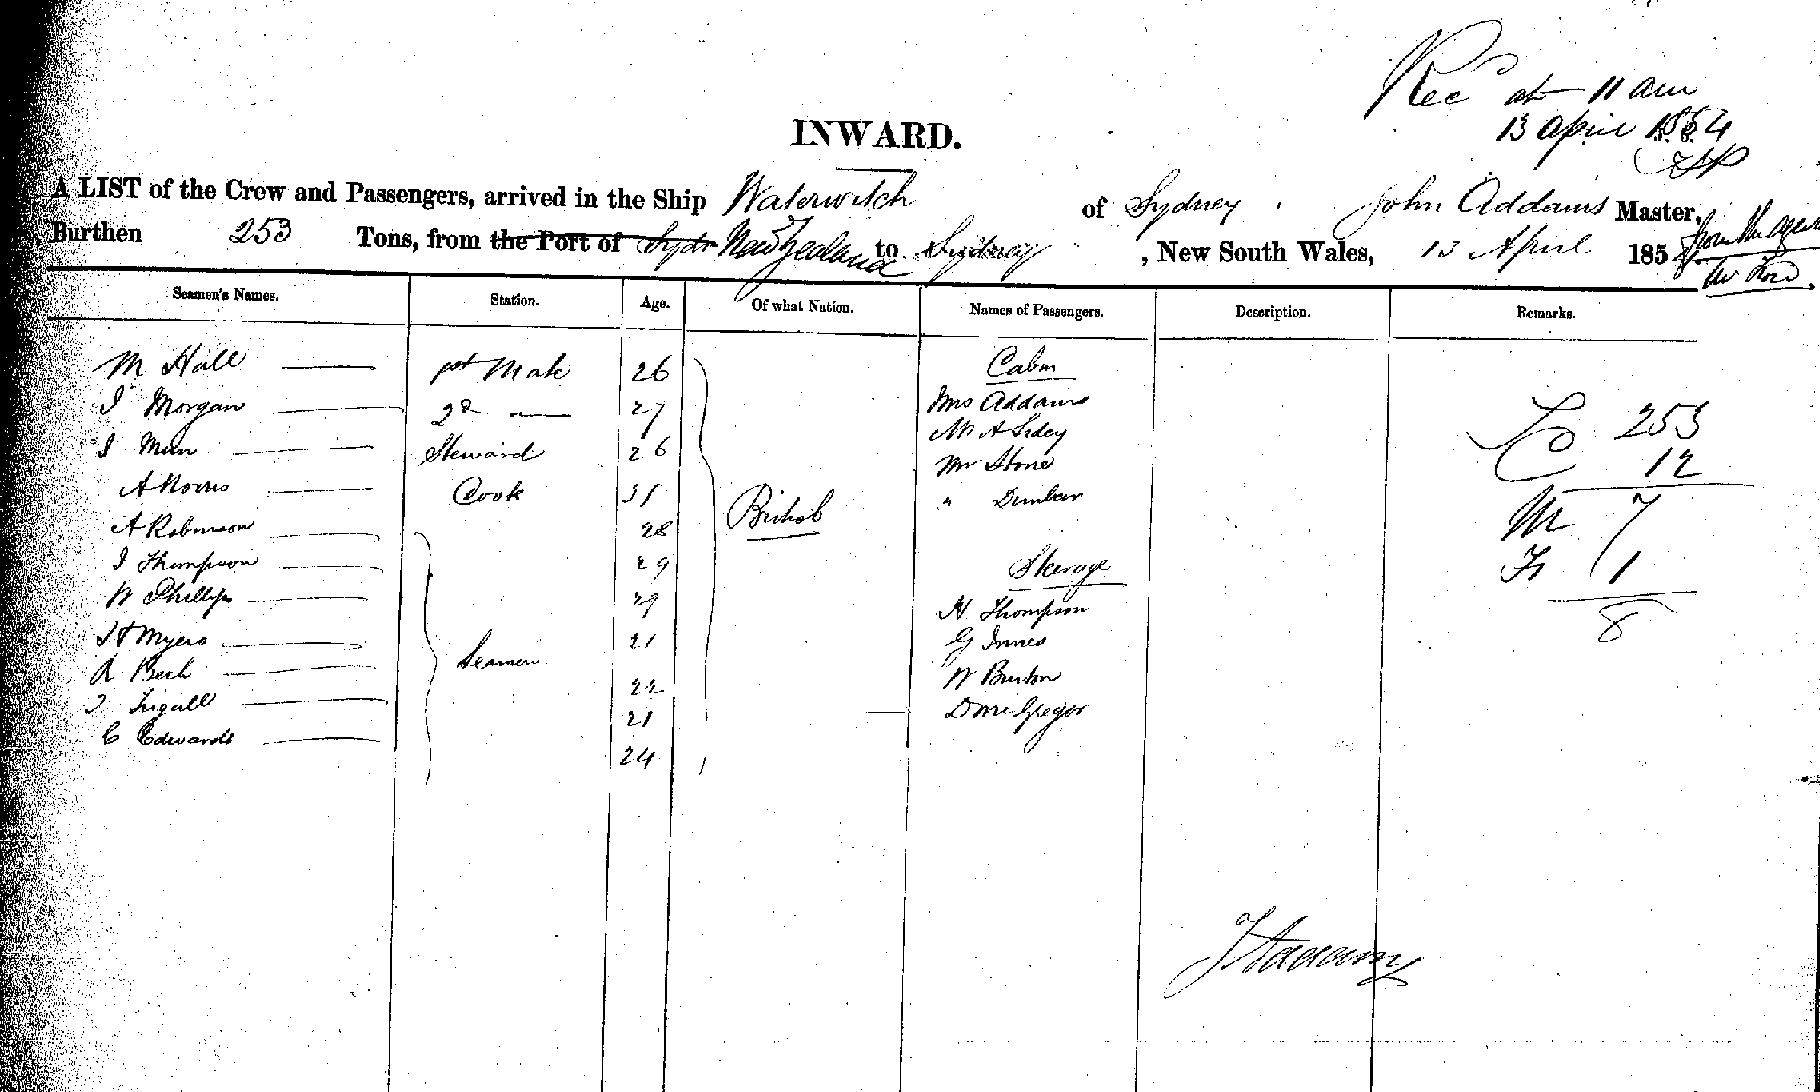 Rec at 11 am
13 April 1854
INWARD.
A LIST of the Crew and Passengers, arrived in the Ship Waterwitch of Sydney John Addams Master,
Burthen 253 Tons, from the Port of Sydn New Zealand to Sydney, New South Wales, 13 April 1854
Seamen's Names. Station. Age. Of what Nation. Names of Passengers. Description. Remarks.
M Hall 1st Mate 26 Cabin
J Morgan 2d 27 Mrs Addams
J 26 Steward Mr A Sidey
A Morris Cook 31 Mr Stone
A Robinson 28 British " Dunbar
J Thompson 29 Steerage
W Phillips 29 H Thompson
J H Myers 21 G Innes
R Seamen 22 W Burton
J 21 D McGregor
C Edwards 24
253
12
M 7
F 1
8
J Addams